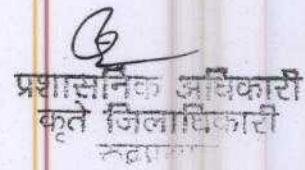 प्रशासनिक अधिकारी
कृते जिलाधिकारी